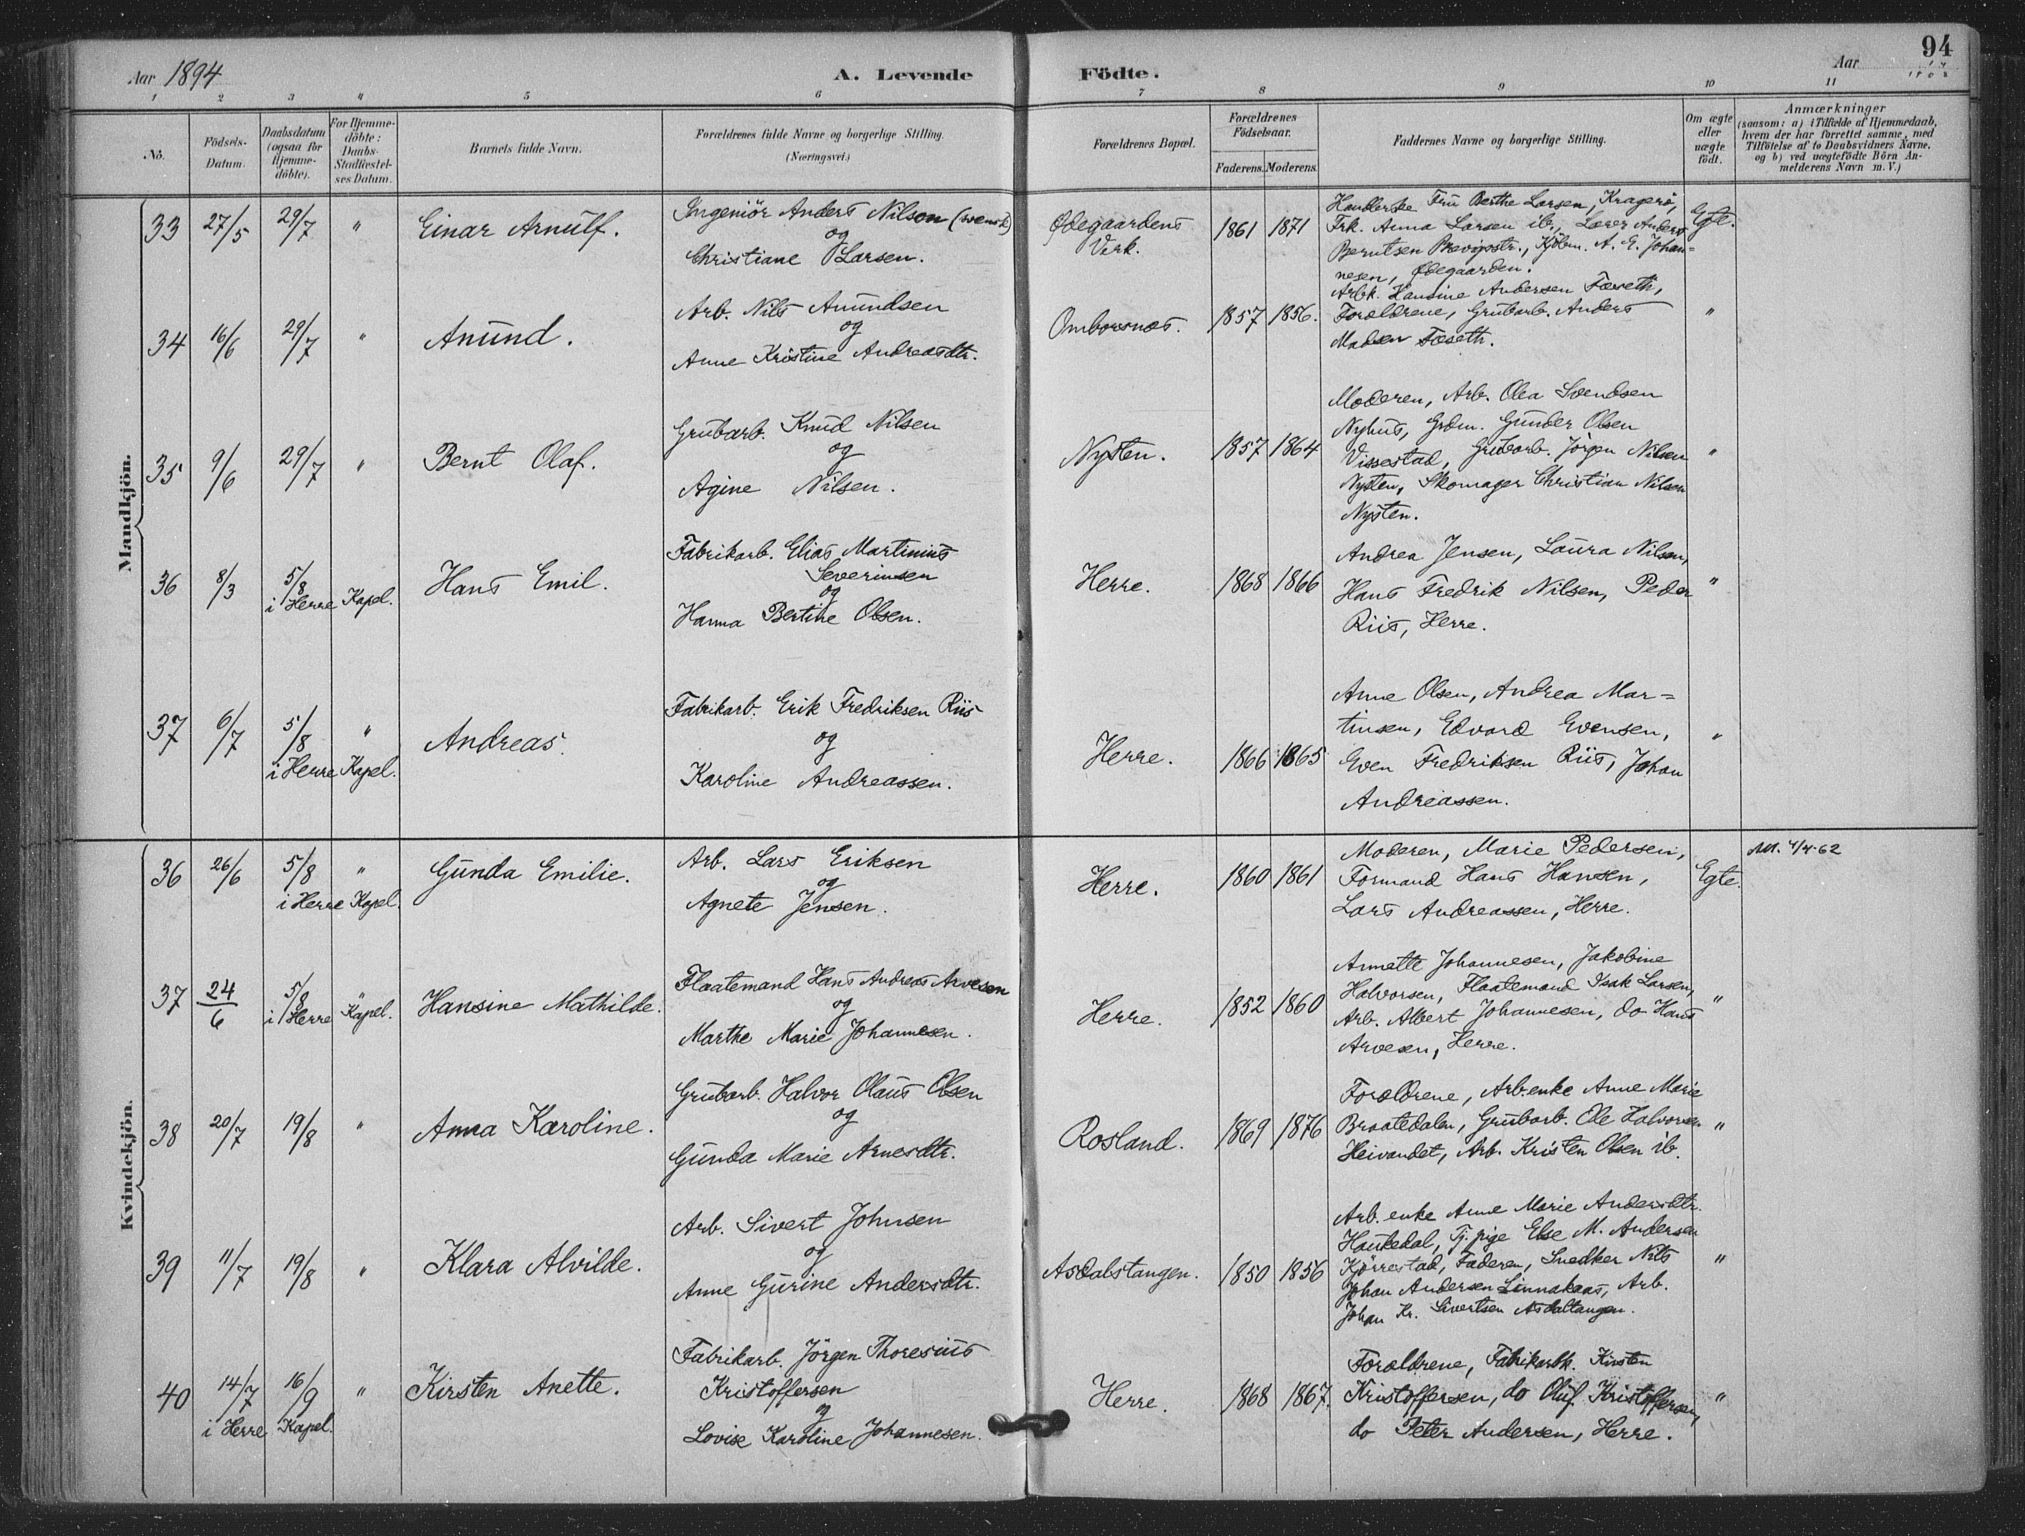 Aar 1894
A. Levende Födte.
Aar
94
1 2 3 " 5 6 7 8 9 10 11
No.
Födsels-Datum.
Daabsdatum (ogsaa for Hjemmedöbte).
For Hjemmedöbte: Daabs-Stadfæstelses Datum.
Barnets fulde Navn.
Forældrenes fulde Navne og borgerlige Stilling.
(Næringsvei.)
Forældrenes Bopæl.
Forældrenes Födselsaar.
Faderens. Moderens.
Faddernes Navne og borgerlige Stilling.
Om ægte eller uægte födt.
Anmærkninger
(saasom: a) i Tilfælde af Hjemmedaab,
hvem der har forrettet samme, med
Tilföielse af to Daabsvidners Navne.
og b) ved uægtefödte Börn An-
melderens Navn m. V.)
Mandkjön.
33 27/5 29/7 " Einar Arnulf.
Ingeniör Anders Nilson (svensk)
og
Christiane Larsen.
Ødegaardens
Verk.
1861 1871
Frü Berthe Larsen, Kragerø,
Frk. Anna Larsen ib., Lærer Anders
Berntsen Brevigsstr., Kjøbm. A. E. Johan-
nesen, Ødegaarden.
Egte.
34 16/6 29/7 " Anünd.
Arb. Nils Anündsen
og
Anne Kristine Andreasdtr.
Ombornæs. 1857 1856.
Arbk. Hansine Andersen Fæseth,
Forældrene, Grubarb. Anders
Madsen Fæseth.
"
35 9/6 29/7 " Bernt Olaf.
Grübarb. Knüd Nilsen
og
Agine Nilsen.
Nysten. 1857 1864
Moderen, Arb. Olea Svendsen
Nyhus, Grdm. Günder Olsen
Vissestad, Grübarb. Jörgen Nilsen
Nysten, Skomager Christian Nilsen
Nysten.
"
36 8/3 5/8 i Herre Kapel. Hans Emil.
Fabrikarb. Elias Martinius
Severinsen
og
Hanna Bertine Olsen.
Herre. 1868 1866
Andrea Jensen, Laura Nilsen,
Hans Fredrik Nilsen, Peder
Riis, Herre.
"
37 6/7 5/8 " i Herre Kapel. Andreas.
Fabrikarb. Erik Fredriksen Riis
og
Karoline Andreassen.
Herre. 1866 1865
Anne Olsen, Andrea Mar-
tinsen, Edvard Evensen,
Even Fredriksen Riis, Johan
Andreassen.
"
Kvindekjön.
36 26/6 5/8 " i Herre Kapel. Gunda Emilie.
Arb. Lars Eriksen
og
Agnete Jensen.
Herre. 1860 1861
Moderen, Marie Pedersen,
Formand Hans Hansen,
Lars Andreassen, Herre.
Egte.
Att. 4/4-62
37 24/6 5/8 i Herre Kapel. Hansine Mathilde.
Flaatemand Hans Andreas Arvesen
og
Marthe Marie Johannesen.
Herre. 1852 1860
Annette Johannesen, Jakobine
Halvorsen, Flaatemand Isak Larsen,
Arb. Albert Johannesen, do Hans
Arvesen, Herre.
"
38 20/7 19/8 " Anna Karoline.
Grubarb. Halvor Olaus Olsen
og
Gunda Marie Arnesdtr.
Rosland. 1869 1876
Forældrene, Arb.enke Anne Marie
Braatedalen, Grubarb. Ole Halvorsen
Heivandet, Arb. Kristen Olsen ib.
"
39 11/7 19/8 " Klara Alvilde.
Arb. Sivert Johnsen
og
Anne Gurine Andersdtr.
Asdalstangen. 1850 1856
Arb.enke Anne Marie Andersdtr.
Haukedal, Tj.pige Else M. Andersen
Kjörrestad, Faderen, Snedker Nils
Johan Andersen Linnakaas, Arb.
Johan Kr. Sivertsen Asdaltangen.
"
40 14/7 16/9 " i Herre Kapel. Kirsten Anette.
Fabrikarb. Jörgen Thoresius
Kristoffersen
og
Lovise Karoline Johannesen.
Herre. 1868 1867.
Forældrene, Fabrikarbk. Kirsten
Kristoffersen, do Oluf Kristoffersen,
do Peter Andersen, Herre.
"